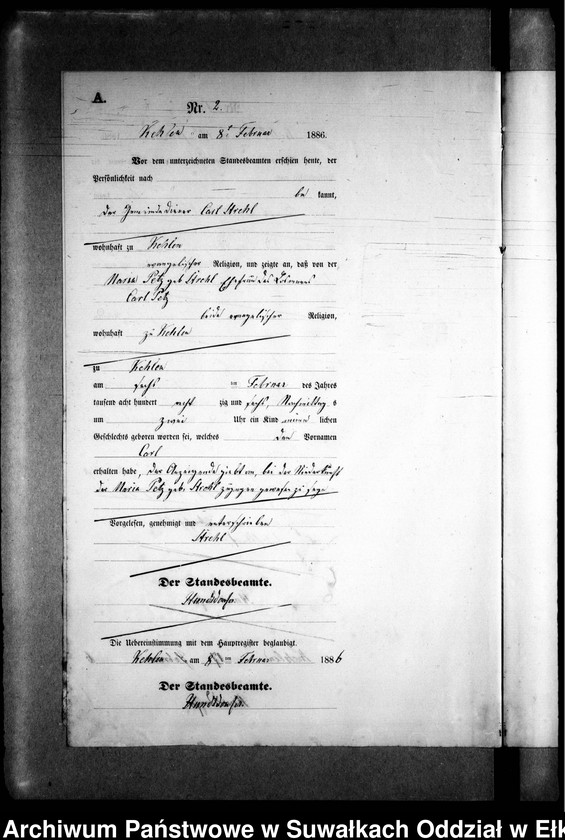 A.
Nr. 2.
Kehlen am 8ten Februar 1886.
Vor dem unterzeichneten Standesbeamten erschien heute, der
Persönlichkeit nach
bekannt,
der Gemeindediener Carl Strehl
wohnhaft zu Kehlen
evangelischer Religion, und zeigte an, daß von der
Maria Petz geb Strehl Ehefrau des
Carl Petz
beide evangelischer Religion,
wohnhaft zu Kehlen
zu Kehlen
am sechs ten Februar des Jahres
tausend acht hundert acht zig und sechs, Nachmittags
um zwei Uhr ein Kind männlichen
Geschlechts geboren worden sei, welches den Vornamen
Carl
erhalten habe, der Anzeigende giebt an, bei der Niederkunft
der Maria Petz geb. Strehl zugegen gewesen zu sein
Vorgelesen, genehmigt und unterschrieben
Strehl
Der Standesbeamte.
Die Uebereinstimmung mit dem Hauptregister beglaubigt.
Kehlen am 8ten Februar 1886
Der Standesbeamte.
Archiwum Państwowe w Suwałkach Oddział w Ełk